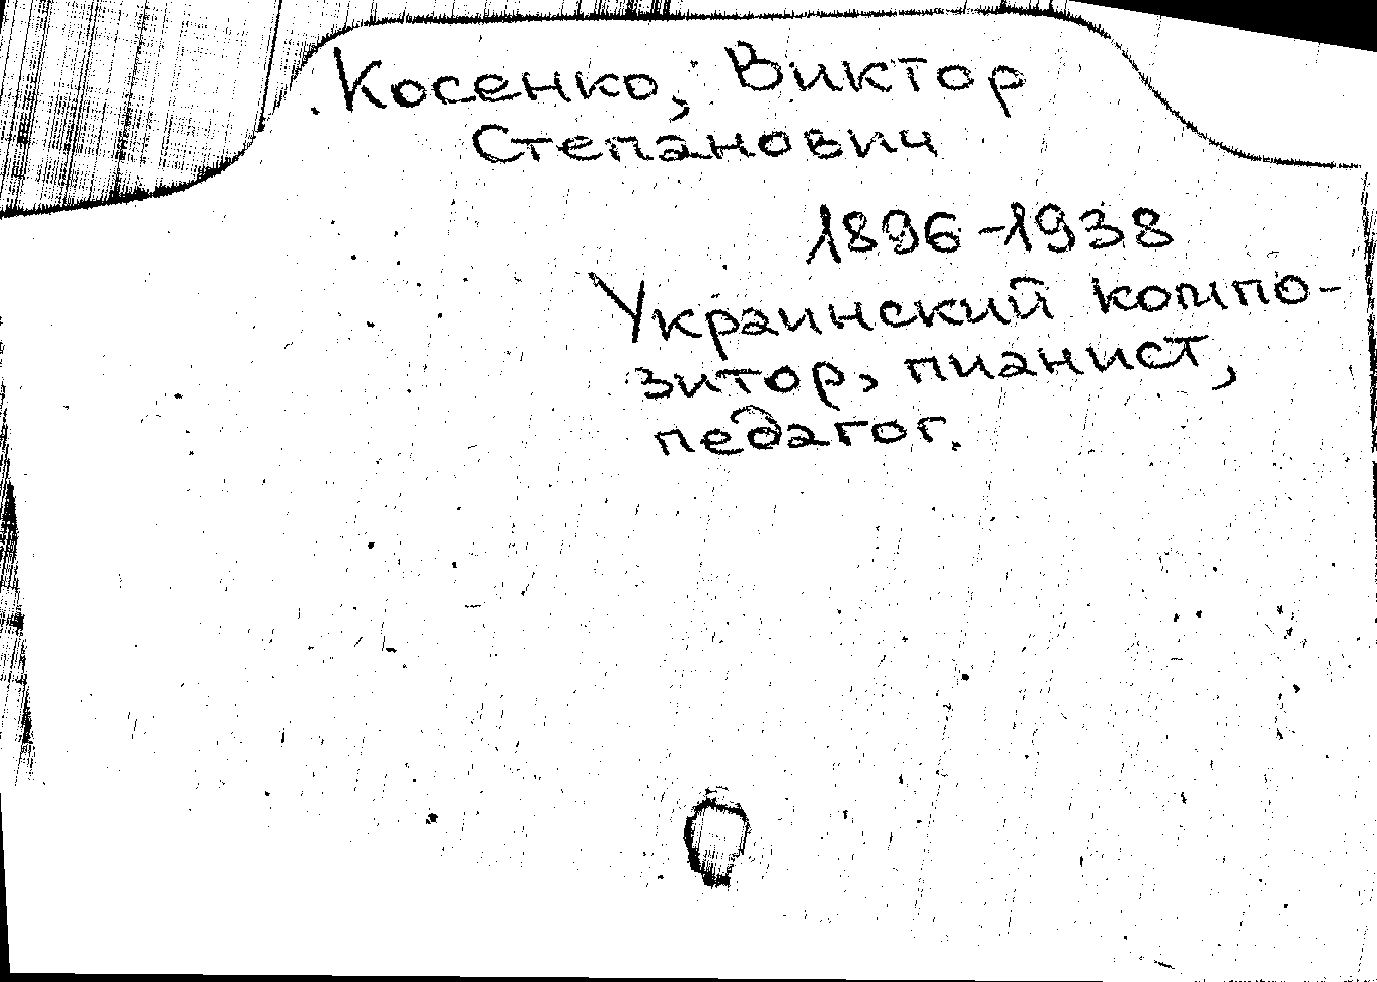 Косенко, Виктор
Степанович
1896-1938
Украинский компо-
зитор, пианист,
педагог.